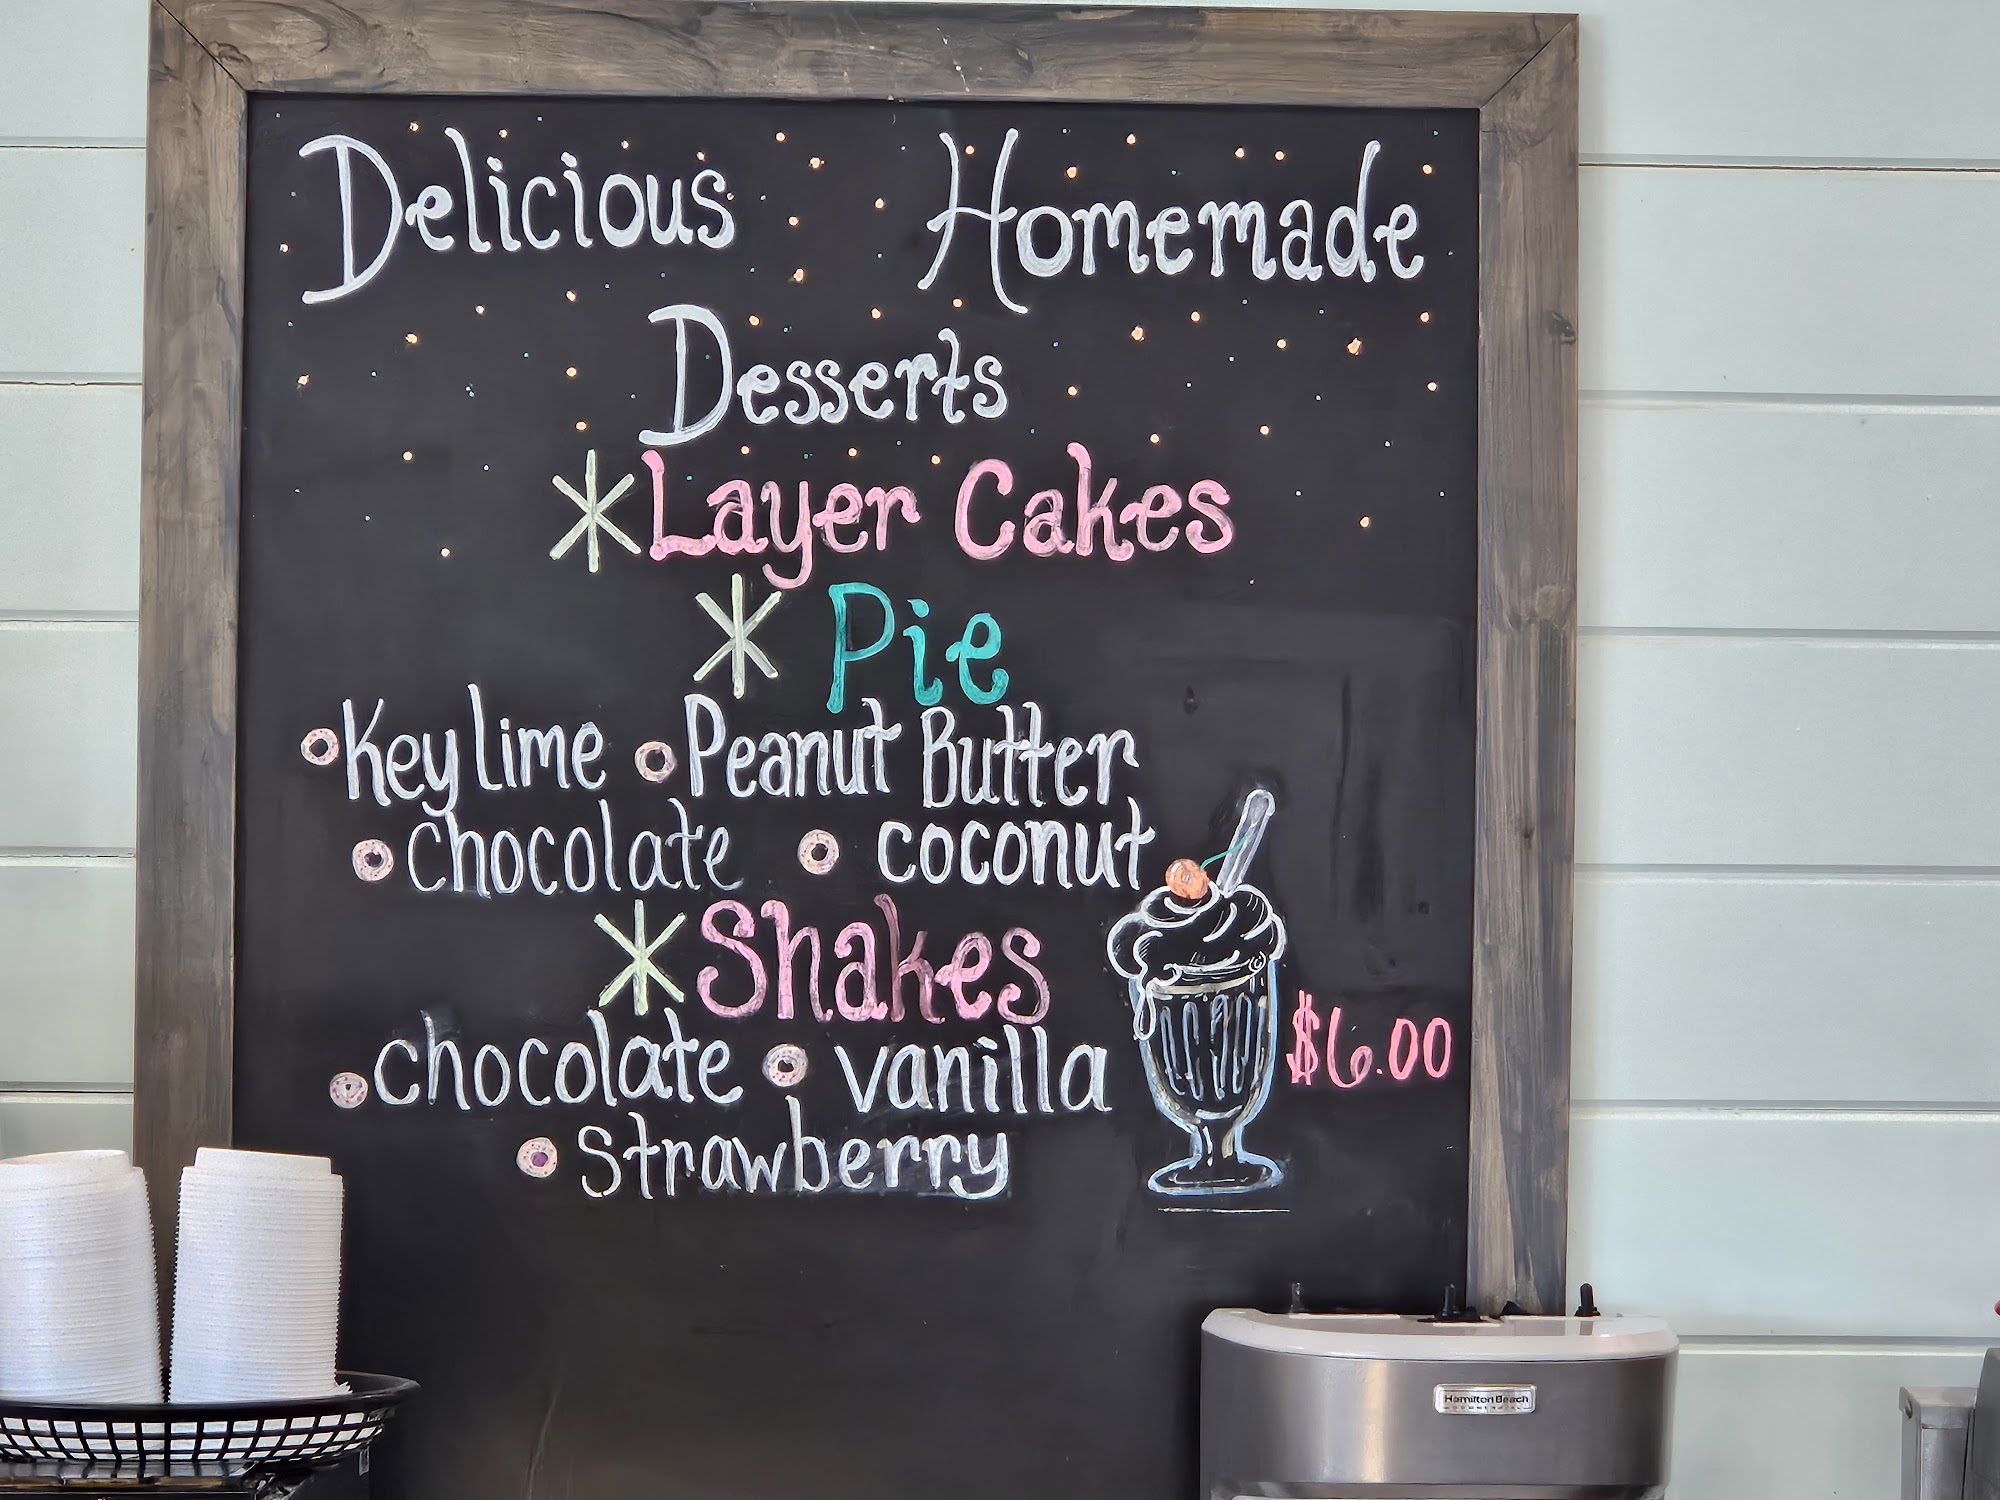 Delicious Homemade
Desserts
*Layer Cakes
* Pie
Key Lime Peanut Butter
chocolate coconut
*Shakes
chocolate vanilla
strawberry
$6.00
Hamilton Beach